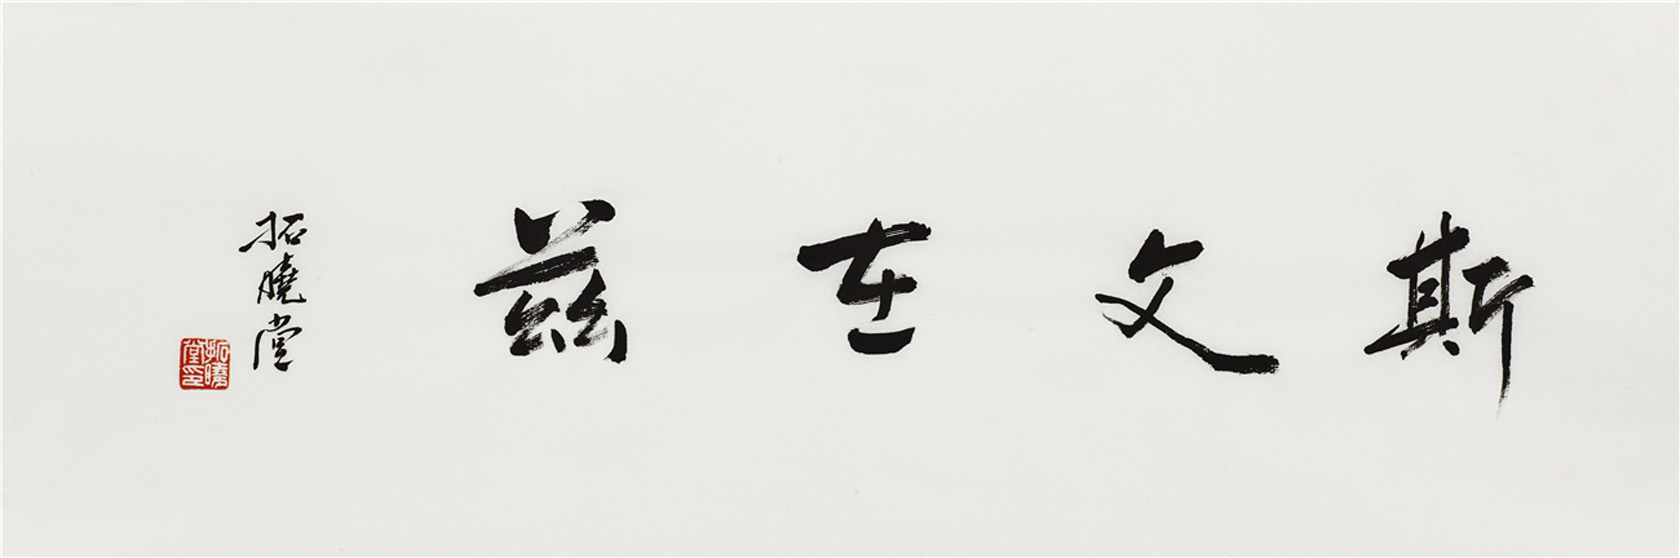 斯文在兹
拓曉堂
拓曉堂印